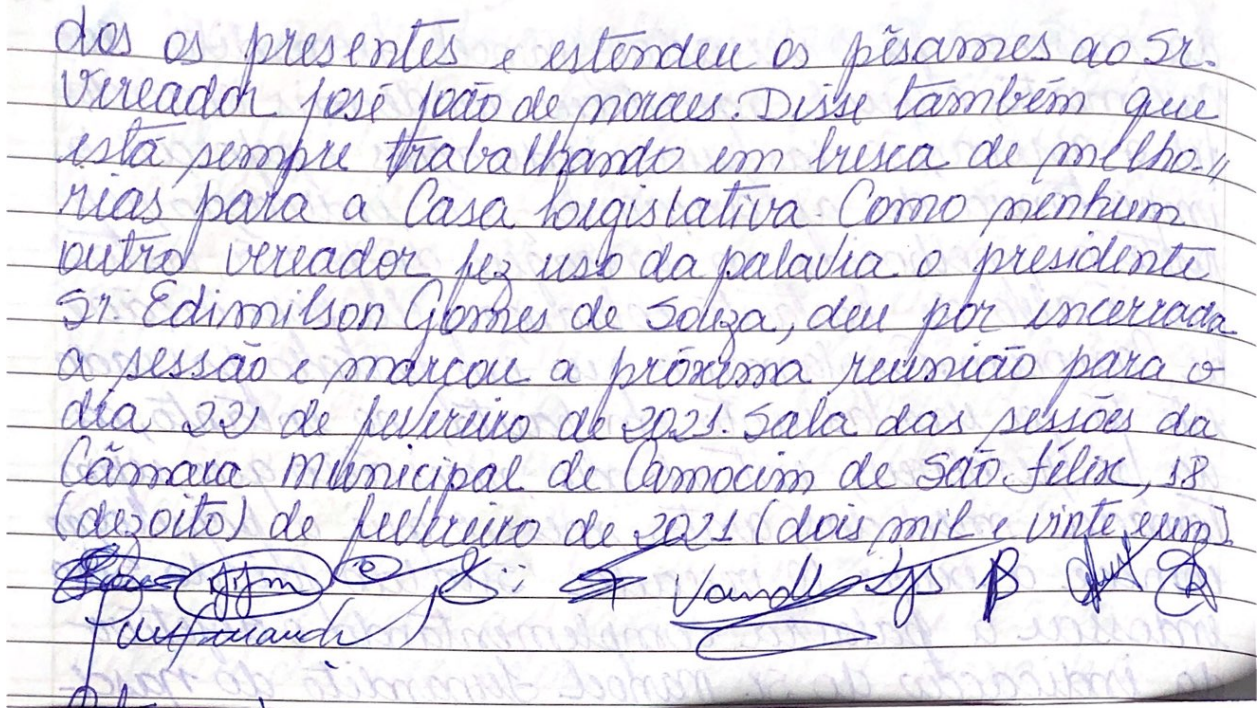 dos os presentes e estendeu os pêsames ao Sr.
Vereador José João de Moraes. Disse também que
está sempre trabalhando em busca de melho-
rias para a Casa Legislativa. Como nenhum
outro vereador fez uso da palavra o presidente
Sr. Edimilson Gomes de Souza, deu por encerrada
a sessão e marcou a próxima reunião para o
dia 22 de fevereiro de 2021. Sala das sessões da
Câmara Municipal de Camocim de São Félix, 18
(dezoito) de fevereiro de 2021 (dois mil e vinte e um).
jjm